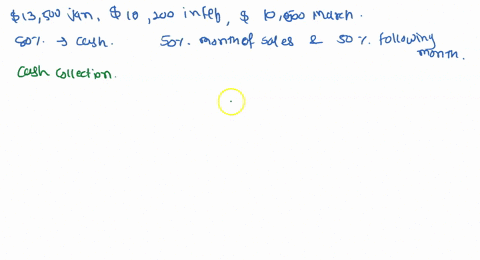 $13,500 Jan, $10,200 in feb, $10,600 March.
50% → cash. 50% month of sales & 50% following
month.
Cash collection.